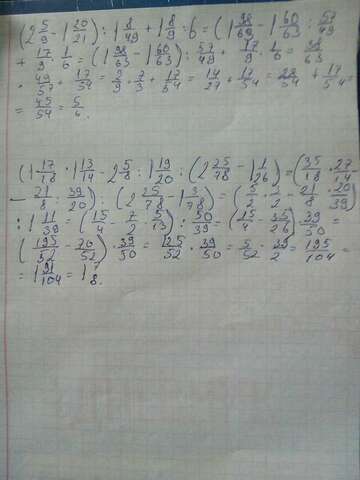 (2 5/9 - 1 20/21) : 1 8/49 + 1 8/9 : 6 = (1 98/63 - 1 60/63) : 57/49
+ 17/9 · 1/6 = (1 98/63 - 1 60/63) : 57/49 + 17/9 · 1/6 = 38/63
· 49/57 + 17/54 = 2/9 · 7/3 + 17/54 = 14/27 + 17/54 = 28/54 + 17/54
= 45/54 = 5/6.
(1 17/18 · 1 13/14 - 2 5/8 : 1 19/20) : (2 25/78 - 1 1/26) = (35/18 · 27/14
- 21/8 : 39/20) : (2 25/78 - 1 3/78) = (5/2 · 3/2 - 21/8 · 20/39)
: 1 11/39 = (15/4 - 7/2 · 5/13) : 50/39 = (15/4 - 35/26) · 39/50 =
(195/52 - 70/52) · 39/50 = 125/52 · 39/50 = 5/52 · 39/2 = 195/104 =
= 1 91/104 = 1 7/8.